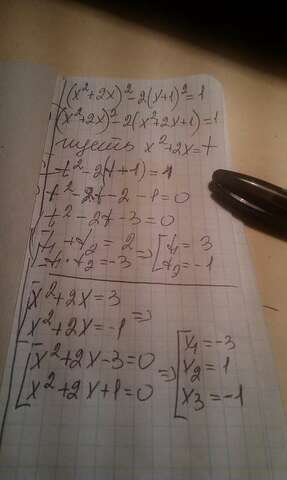 (x²+2x)²-2(x+1)²=1
(x²+2x)²-2(x²+2x+1)=1
пусть x²+2x=t
t²-2(t+1)=1
t²-2t-2-1=0
t²-2t-3=0
t₁+t₂=2 => [t₁=3
t₁·t₂=-3 [t₂=-1
[x²+2x=3 =>
[x²+2x=-1
[x²+2x-3=0 => [x₁=-3
[x²+2x+1=0 [x₂=1
[x₃=-1